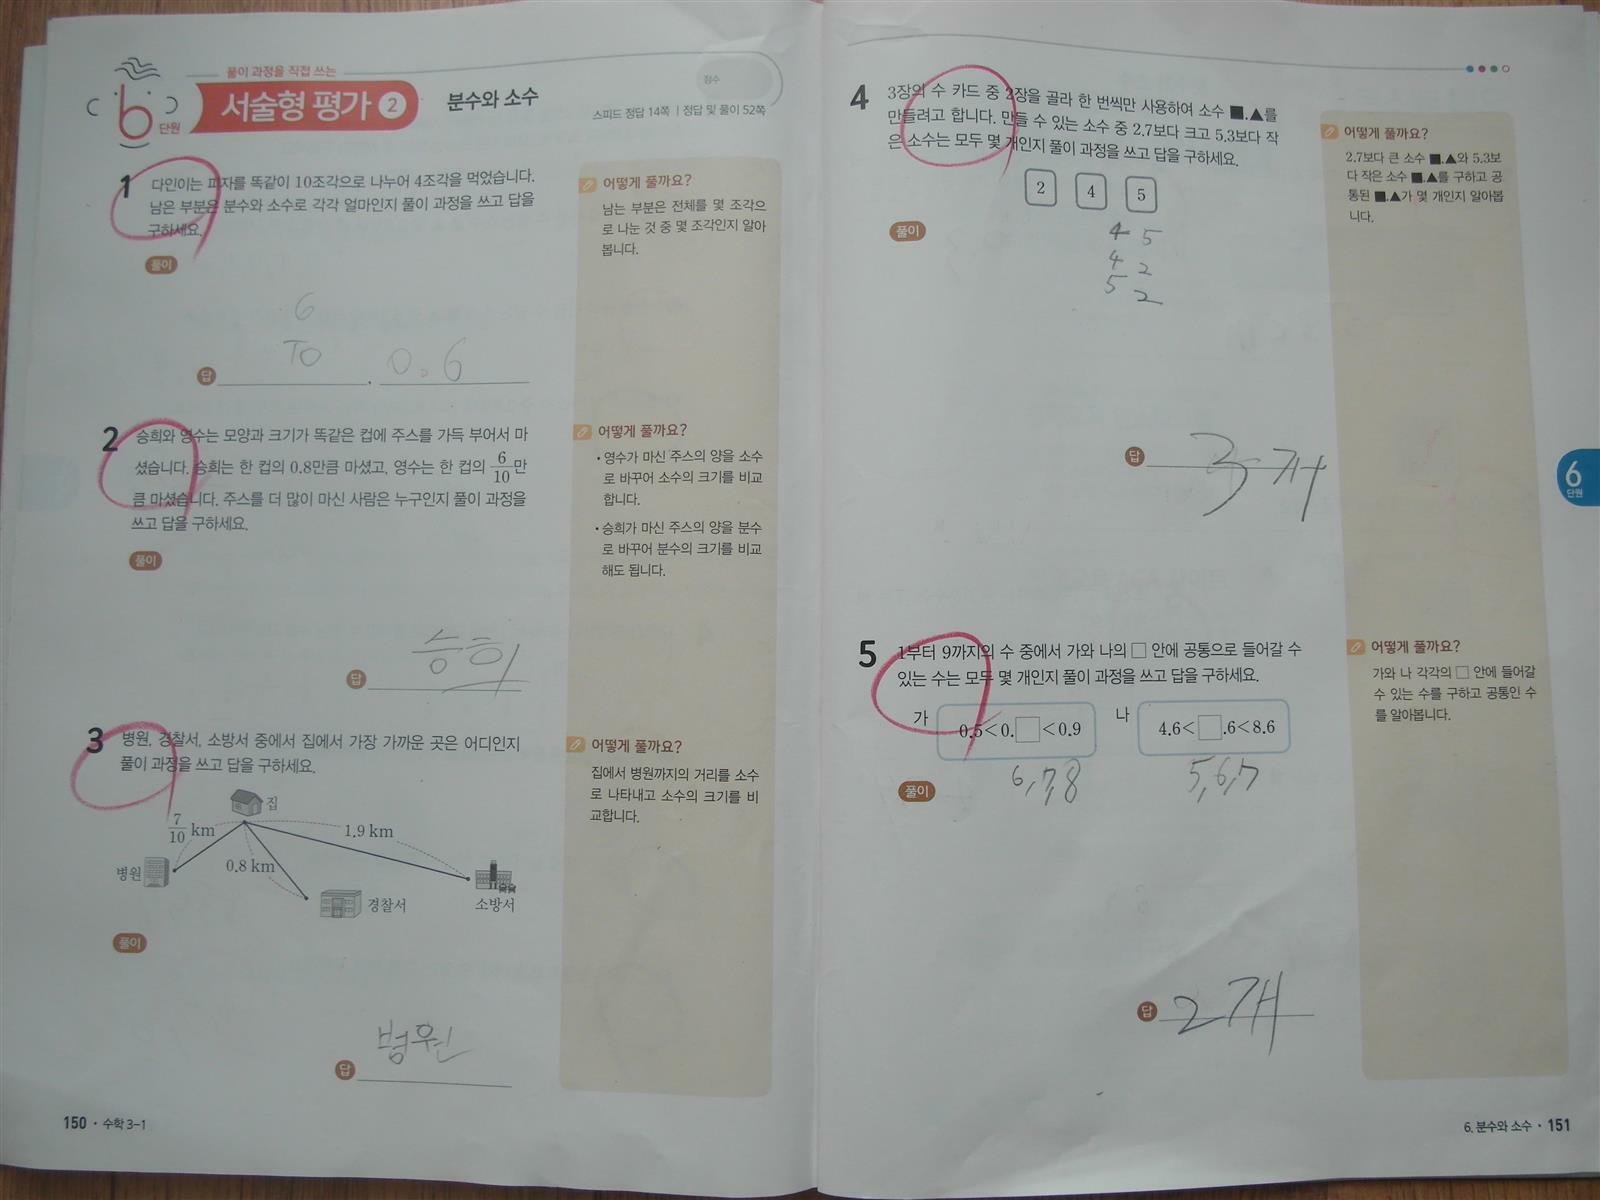 풀이 과정을 직접 쓰는
6 단원 서술형 평가 2 분수와 소수
점수
스피드 정답 14쪽 | 정답 및 풀이 52쪽
1 다인이는 피자를 똑같이 10조각으로 나누어 4조각을 먹었습니다.
남은 부분은 분수와 소수로 각각 얼마인지 풀이 과정을 쓰고 답을
구하세요.
풀이
6
10
답 , 0.6
어떻게 풀까요?
남는 부분은 전체를 몇 조각으
로 나눈 것 중 몇 조각인지 알아
봅니다.
2 승희와 영수는 모양과 크기가 똑같은 컵에 주스를 가득 부어서 마
셨습니다. 승희는 한 컵의 0.8만큼 마셨고, 영수는 한 컵의 6/10만
큼 마셨습니다. 주스를 더 많이 마신 사람은 누구인지 풀이 과정을
쓰고 답을 구하세요.
풀이
답 승희
어떻게 풀까요?
• 영수가 마신 주스의 양을 소수
로 바꾸어 소수의 크기를 비교
합니다.
• 승희가 마신 주스의 양을 분수
로 바꾸어 분수의 크기를 비교
해도 됩니다.
3 병원, 경찰서, 소방서 중에서 집에서 가장 가까운 곳은 어디인지
풀이 과정을 쓰고 답을 구하세요.
집
7/10 km
1.9 km
0.8 km
병원
경찰서
소방서
풀이
답 병원
어떻게 풀까요?
집에서 병원까지의 거리를 소수
로 나타내고 소수의 크기를 비
교합니다.
150 • 수학 3-1
4 3장의 수 카드 중 2장을 골라 한 번씩만 사용하여 소수 ■.▲를
만들려고 합니다. 만들 수 있는 소수 중 2.7보다 크고 5.3보다 작
은 소수는 모두 몇 개인지 풀이 과정을 쓰고 답을 구하세요.
2 4 5
풀이
4 5
4 2
5 2
답 3개
어떻게 풀까요?
2.7보다 큰 소수 ■.▲와 5.3보
다 작은 소수 ■.▲를 구하고 공
통된 ■.▲가 몇 개인지 알아봅
니다.
6
단원
5 1부터 9까지의 수 중에서 가와 나의 □ 안에 공통으로 들어갈 수
있는 수는 모두 몇 개인지 풀이 과정을 쓰고 답을 구하세요.
가 0.5<0.□<0.9 나 4.6<□.6<8.6
6,7,8 5,6,7
풀이
답 2개
어떻게 풀까요?
가와 나 각각의 □ 안에 들어갈
수 있는 수를 구하고 공통인 수
를 알아봅니다.
6. 분수와 소수 • 151